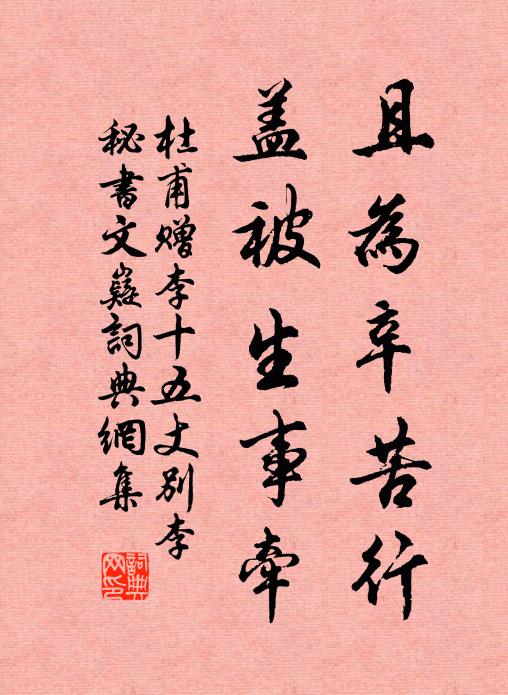 且為辛苦行
盖被生事牽
杜甫赠李十五丈别李
秘書文嶷詞典網集
詞典
网印